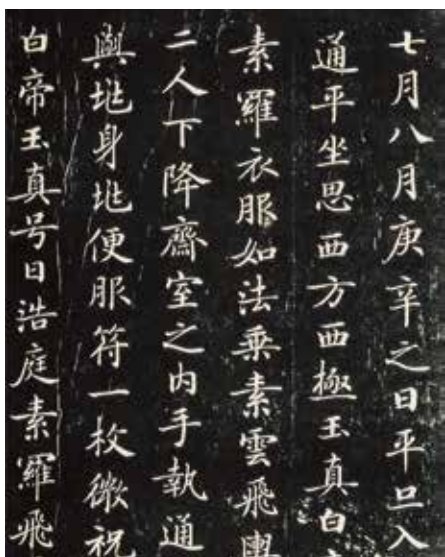 七月八月庚辛之日平旦入
通平坐思西方西極玉真白
素羅衣服如法乗素雲飛輿
二人下降齋室之内手執通
與地身地便服符一枚微祝
白帝玉真号曰浩庭素羅飛